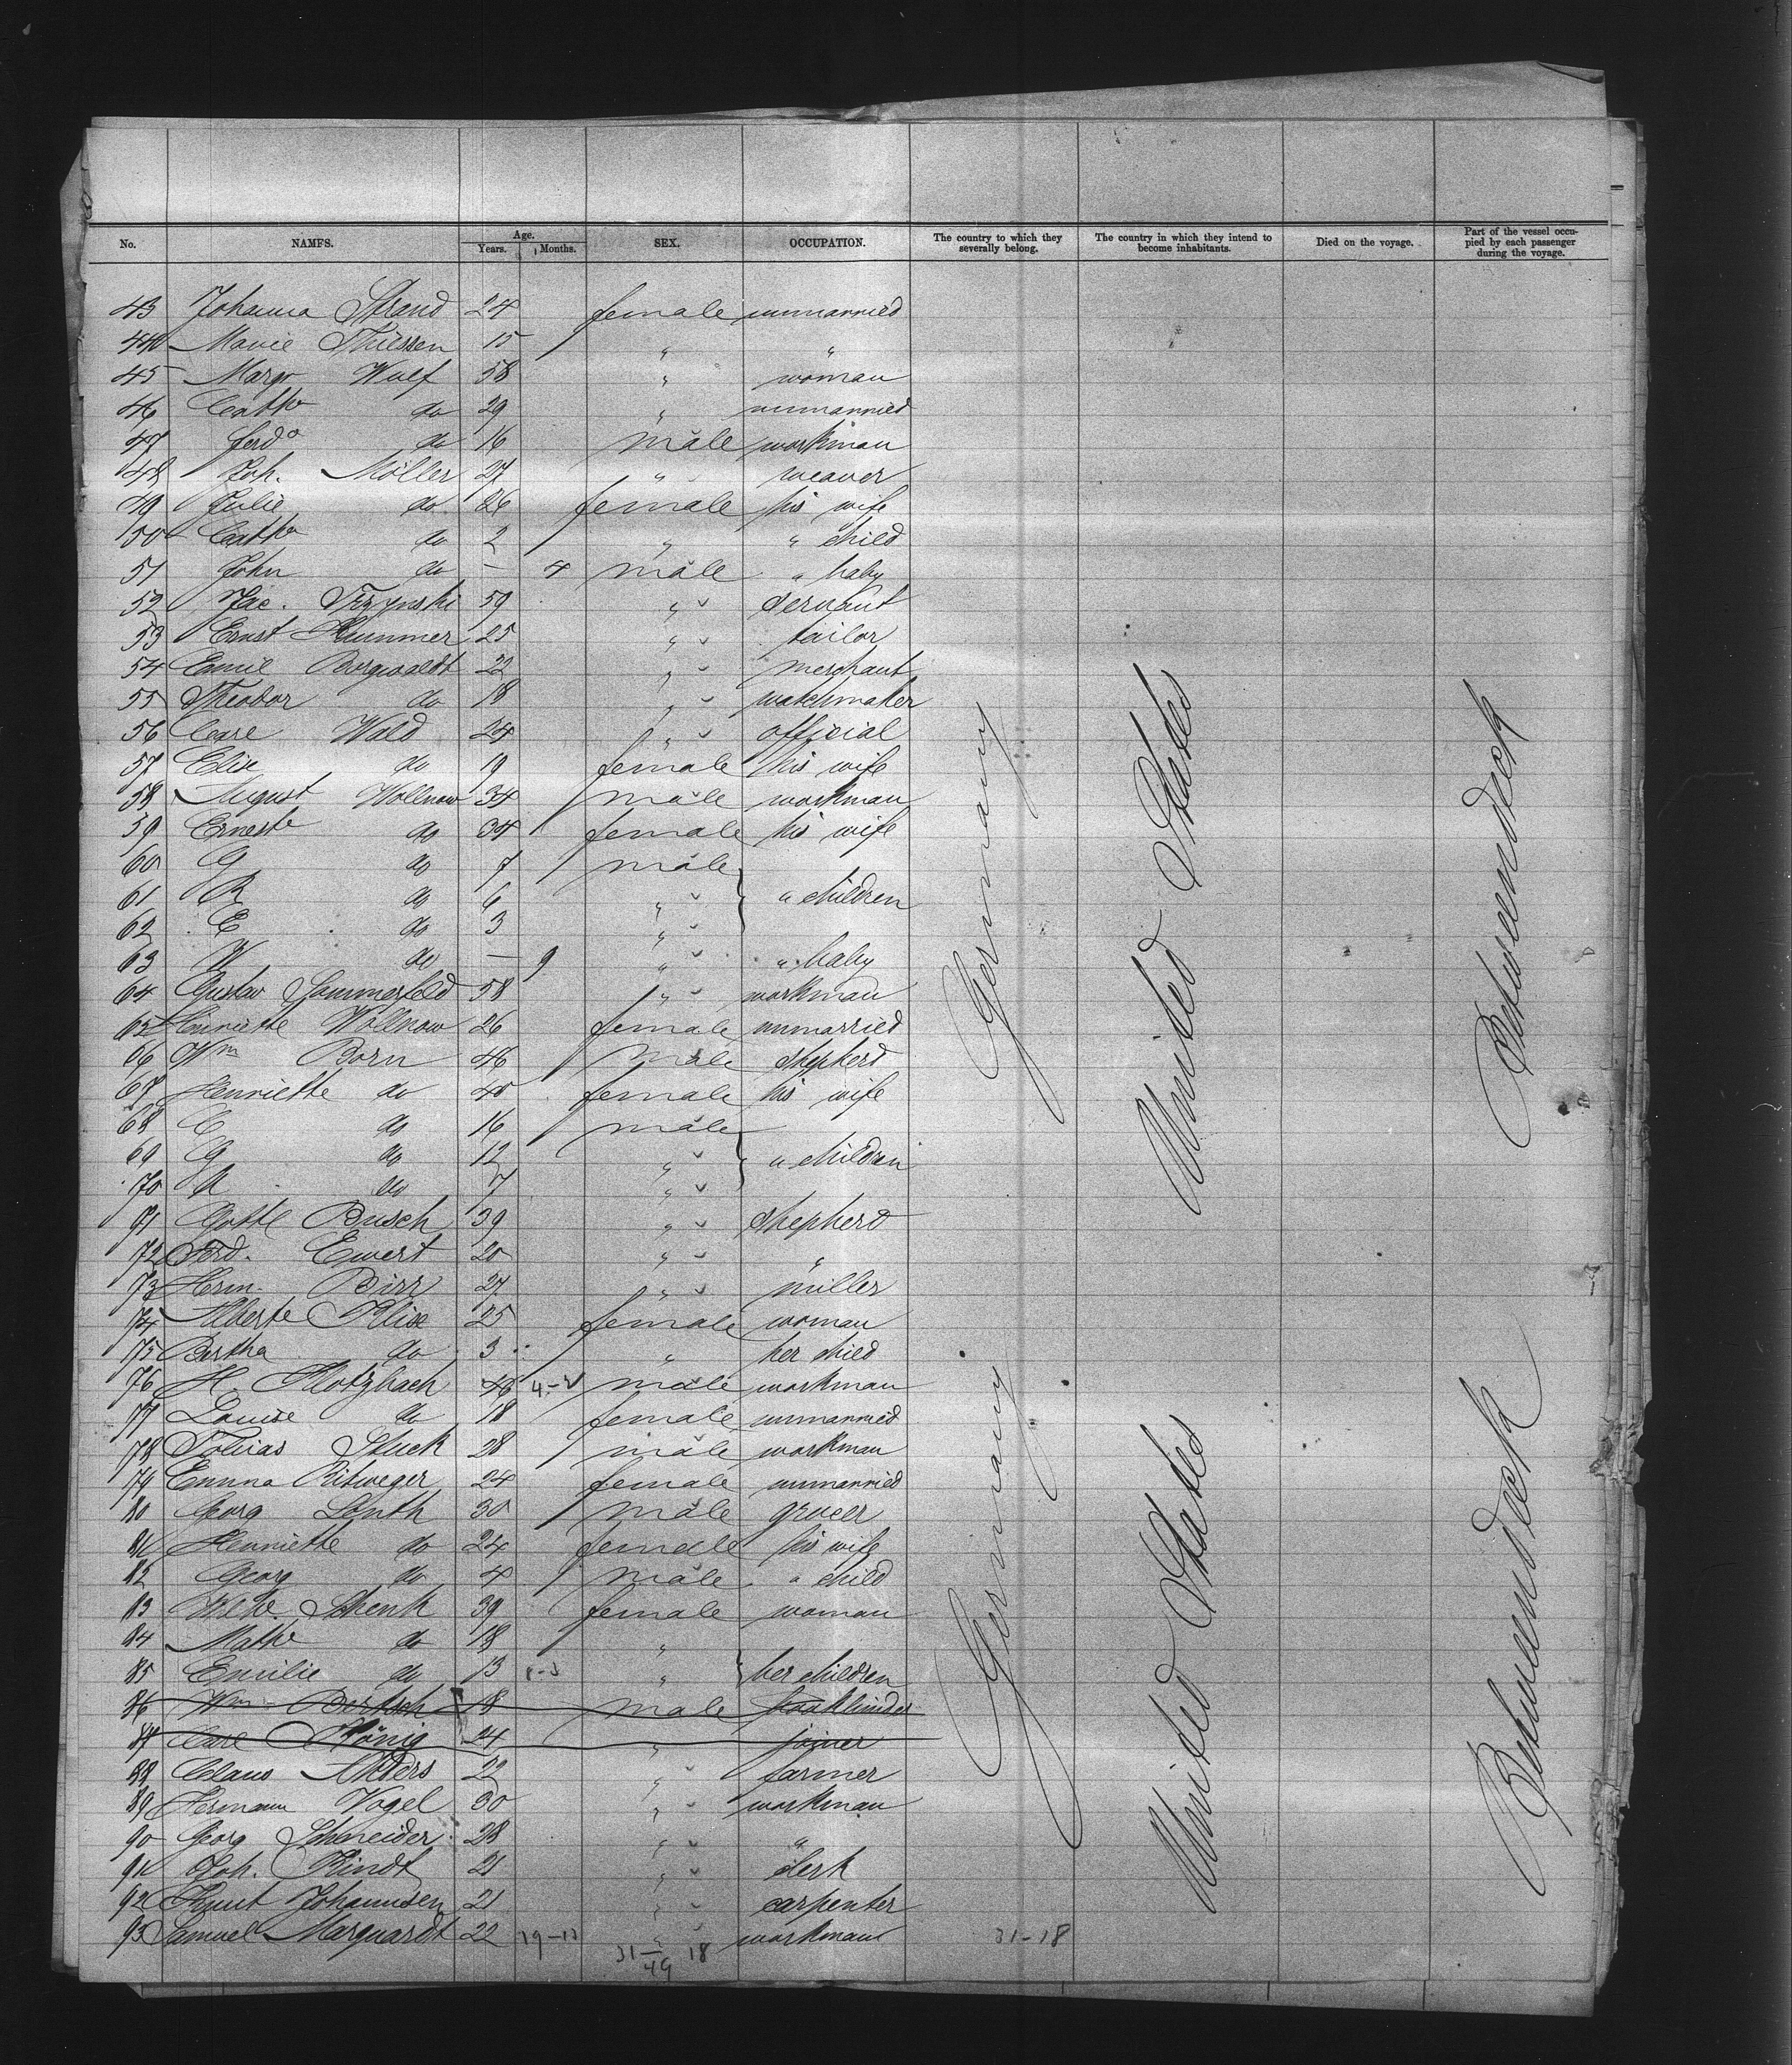 No. NAMES. Age. Years. Months. SEX. OCCUPATION. The country to which they severally belong. The country in which they intend to become inhabitants. Died on the voyage. Part of the vessel occupied by each passenger during the voyage.
43 Johanna Strand 24 female unmarried
44 Marie Thiessen 15 " "
45 Margr Wulf 58 " woman
46 Cathe do 29 " unmarried
47 Ferdo do 16 male workman
48 Joh. Möller 27 " weaver
49 Julie do 26 female his wife
50 Cathe do 2 " " child
51 John do - 4 male " baby
52 Jac. Trzynski 59 " servant
53 Ernst Kummer 25 " tailor
54 Emil Borgwaldt 22 " merchant
55 Theodor do 18 " watchmaker
56 Carl Wald 24 " official
57 Elise do 19 female his wife
58 August Wollnow 34 male workman
59 Erneste do 34 female his wife
60 G do 7 male
61 R do 6 " " children
62 E do 3 "
63 W do - 9 " " baby
64 Gustav Sommerfeld 58 " workman
65 Henriette Wollnow 26 female unmarried
66 Wm Born 46 male shepherd
67 Henriette do 45 female his wife
68 C do 16 male
69 G do 12 " " children
70 A do 7 "
71 Gottl Busch 39 " shepherd
72 Ferd. Ewert 20 " "
73 Herm. Birr 27 " miller
74 Alberte Klise 25 female woman
75 Bertha do 3 " her child
76 H Klotzbach 46 male workman
77 Louise do 18 female unmarried
78 Tobias Stuck 28 male workman
79 Emma Ritweger 24 female unmarried
80 Georg Lenth 30 male grocer
81 Henriette do 24 female his wife
82 Georg do 4 male " child
83 Wilhe. Schenk 39 female woman
84 Mathe do 18 "
85 Emilie do 13 " her children
86 Wm Bertsch 18 male bookbinder
87 Carl König 24 " joiner
88 Claus Ahlers 22 " farmer
89 Hermann Vogel 30 " workman
90 Georg Schneider 28 " "
91 Joh. Rindt 21 " clerk
92 Knut Johannsen 21 " carpenter
93 Samuel Marquardt 22 " workman
31-18
49
31-18
Germany
United States
Betweendeck
Germany
United States
Betweendeck